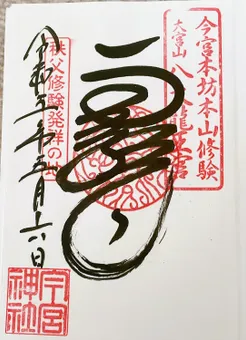 今宮本坊本山修験
大宮山
八大龍王宮
秩父修験発祥の地
令和元年五月十六日
今宮
神社